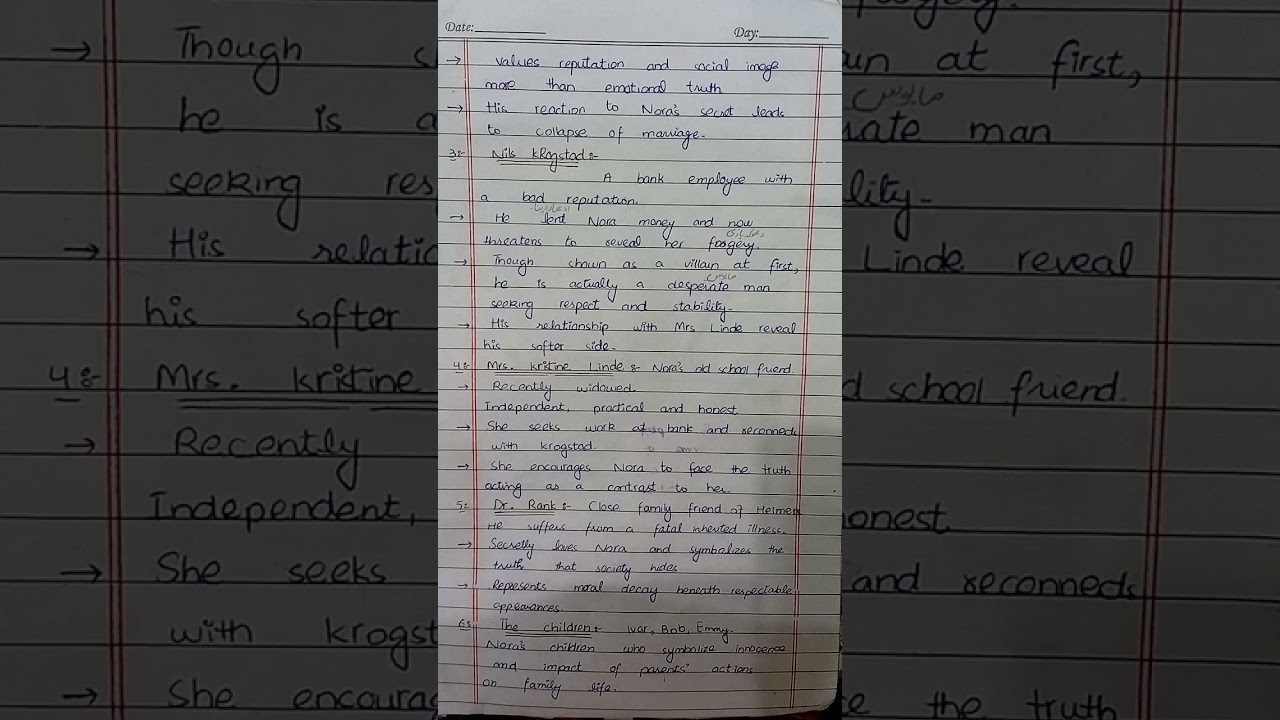 Date:
Day:
→ values reputation and social image
more than emotional truth
→ His reaction to Nora's secret leads
to collapse of marriage.
3:- Nils kRogstad:-
A bank employee with
a bad reputation.
→ He lent Nora money and now
threatens to reveal her forgery.
→ Though shown as a villain at first,
مایوس
he is actually a desperate man
seeking respect and stability.
→ His relationship with Mrs Linde reveal
his softer side.
4:- Mrs. kristine Linde:- Nora's old school friend.
→ Recently widowed.
Independent, practical and honest
→ She seeks work at bank and reconnects
with krogstad.
→ She encourages Nora to face the truth
acting as a contrast to her.
5:- Dr. Rank:- Close family friend of Helmer
He suffers from a fatal inherited illness.
→ Secretly loves Nora and symbolizes the
truth that society hides
→ Represents moral decay beneath respectable
appearances.
6:- The children:- Ivar, Bob, Emmy.
Nora's children who symbolize innocence
and impact of parents' actions
on family life.